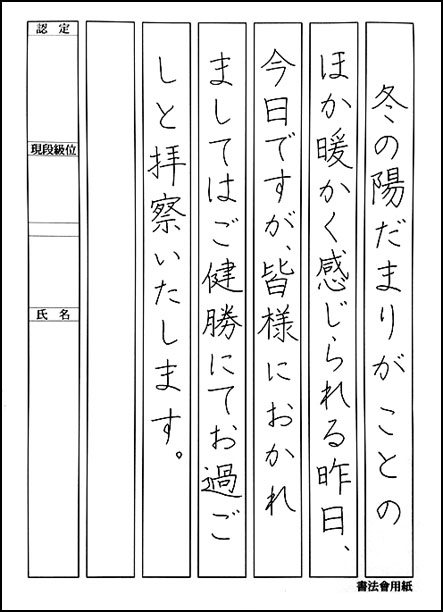 冬の陽だまりがことの
ほか暖かく感じられる昨日、
今日ですが、皆様におかれ
ましてはご健勝にてお過ご
しと拝察いたします。
認定
現段級位
氏名
書法會用紙